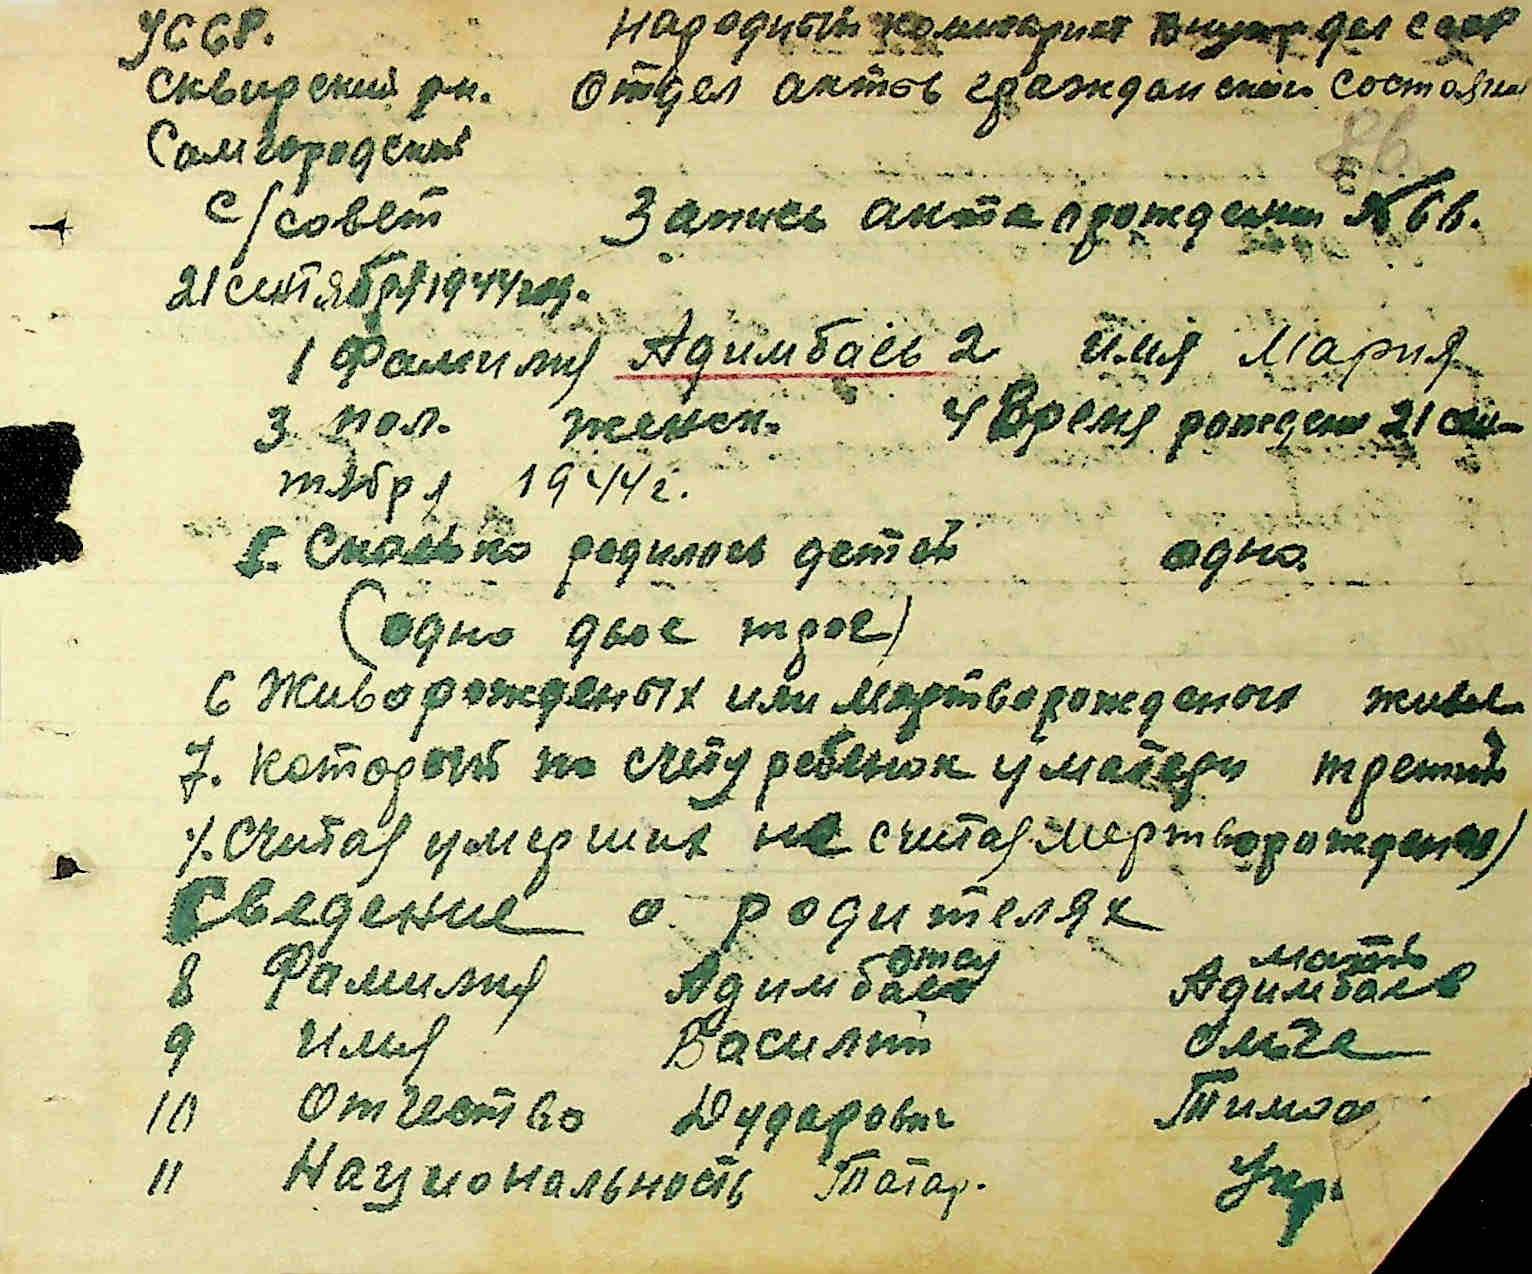 УССР. Народный комисариат внутр дел СССР
Сквирский рн. Отдел актов гражданского состояния
Самгородский
с/совет Запись акта о рождении № 66.
86
21 сентября 1944 год.
1 Фамилия Адимбаев 2 имя Мария
3 пол. женск. 4 Время рождения 21 сен-
тября 1944 г.
5. Сколько родилось детей одно.
(одно двое трое)
6 Живорожденых или мертворожденых живые
7. который по счету ребенок у матери третий
/. считая умерших не считая мертворожденых)
Сведение о родителях
отец мать
8 Фамилия Адимбаев Адимбаев
9 Имя Василий Ольга
10 Отчество Дударович Тимоф
11 Национальность Татар. Укр.